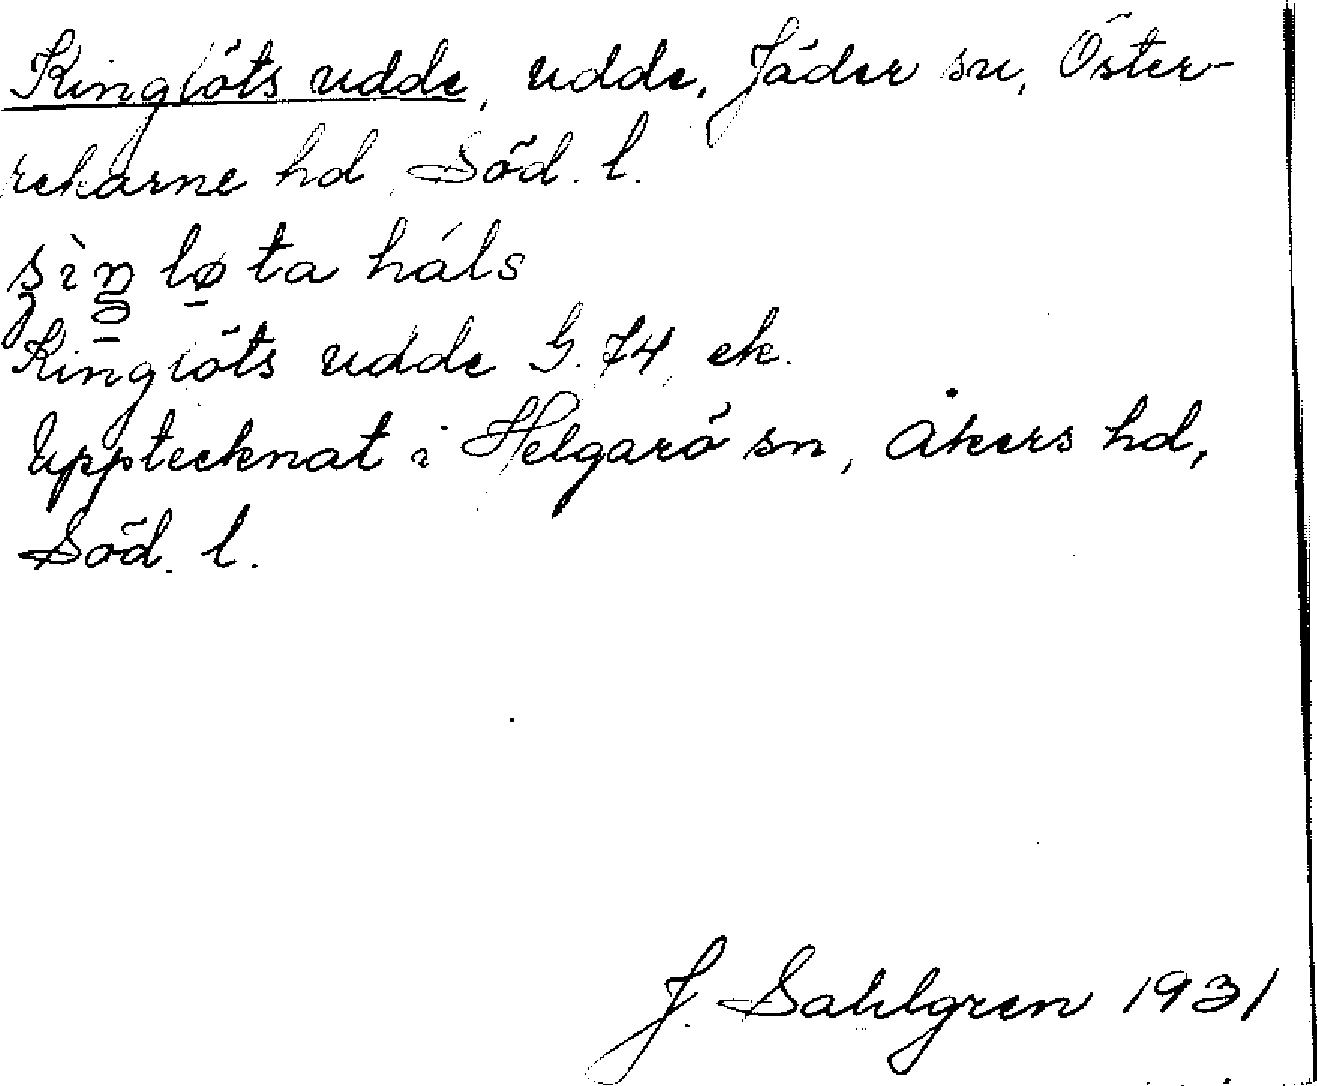 Kinglöts udde, udde, Jäder sn, Öster-
rekarne hd, Söd. l.
ʂìŋlø̠ta háls
Kinglöts udde G. 74, ek.
Upptecknat i Helgarö sn, Åkers hd,
Söd. l.
J. Sahlgren 1931